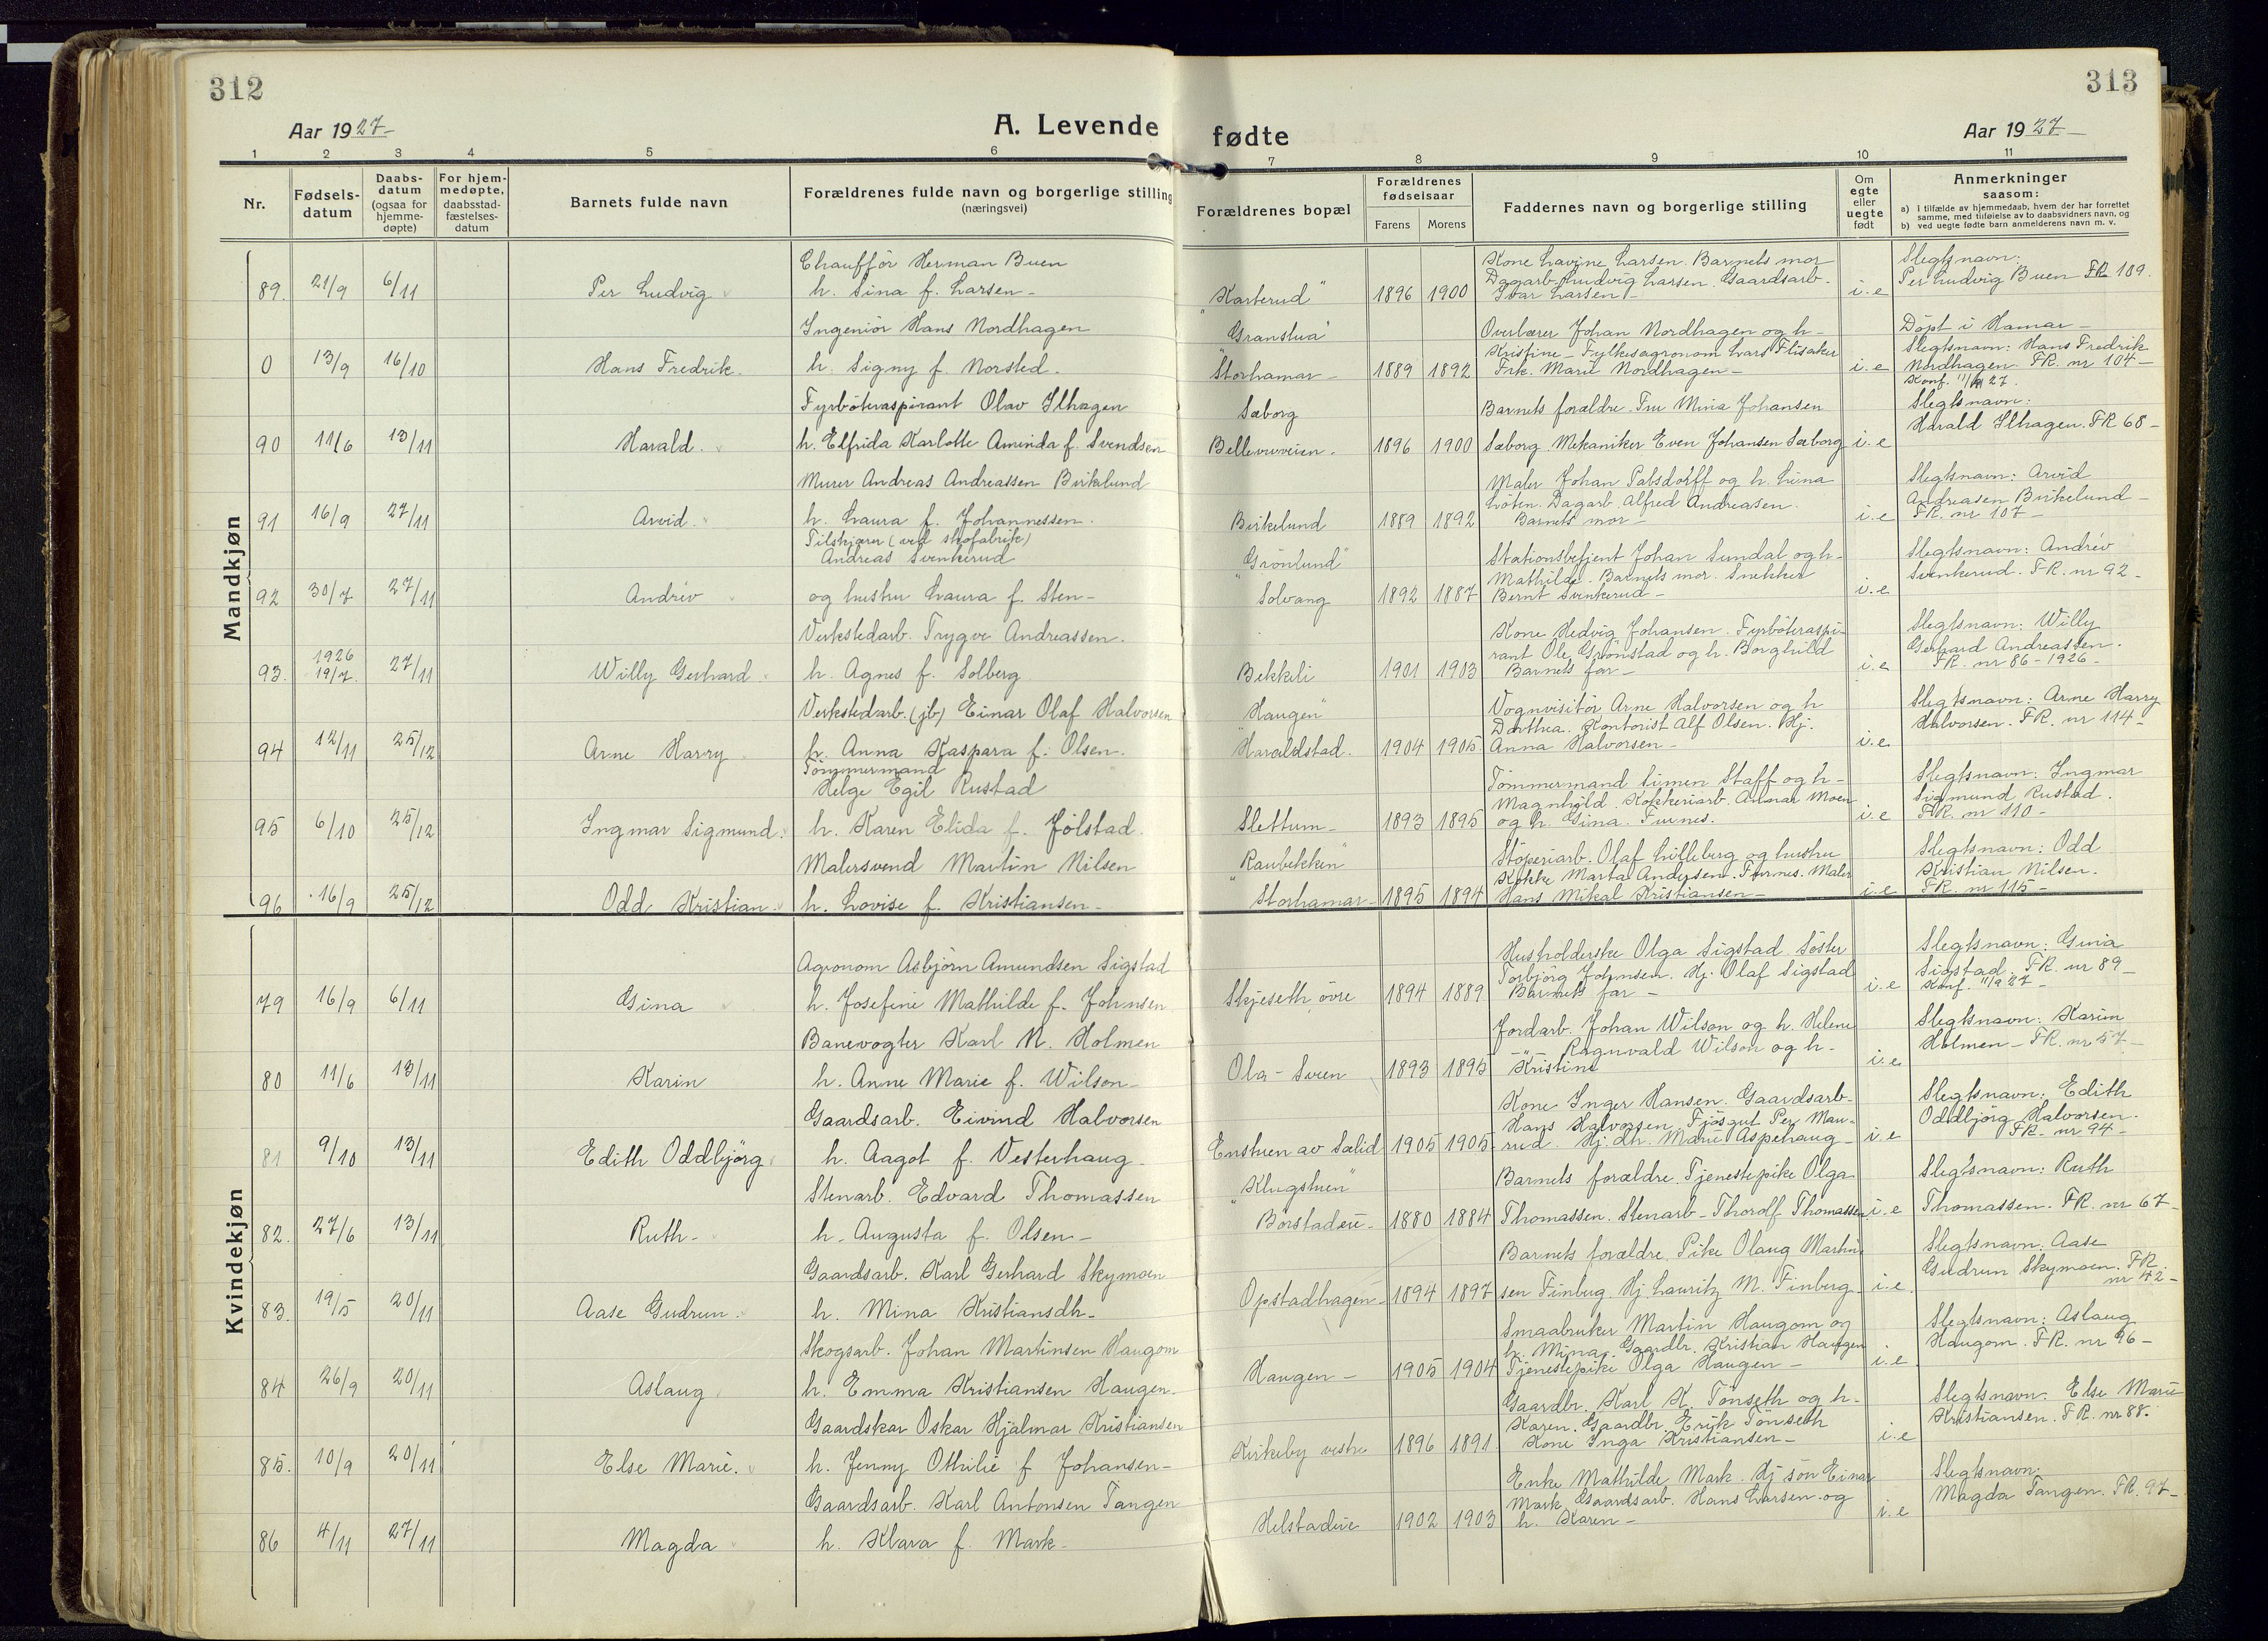 312
Aar 1927
A. Levende
1 2 3 4 5 6
Nr.
Fødsels-
datum
Daabs-
datum
(ogsaa for
hjemme-
døpte)
For hjem-
medøpte,
daabsstad-
fæstelses-
datum
Barnets fulde navn
Forældrenes fulde navn og borgerlige stilling
(næringsvei)
Mandkjøn
Chauffør Herman Buen
89. 21/9 6/11 Per Ludvig h. Lina f. Larsen -
Ingeniør Hans Nordhagen
0 13/9 16/10 Hans Fredrik. h. Signy f. Norsted.
Fyrbøteraspirant Olav Ilhagen
90 11/6 13/11 Harald. h. Elfrida Karlotte Aminda f. Svendsen
Murer Andreas Andreassen Birkelund
91 16/9 27/11 Arvid. h. Laura f. Johannessen.
Tilskjærer (ved skofabrik)
Andreas Svenkerud
92 30/7 27/11 Andrév og hustru Laura f. Sten -
Verkstedarb. Trygve Andreassen.
1926
93. 19/7. 27/11 Willy Gerhard h. Agnes f. Solberg
Verkstedarb. (jb) Einar Olaf Halvorsen
94 12/11 25/12 Arne Harry h. Anna Kaspara f. Olsen.
Tømmermand
Helge Egil Rustad
95 6/10 25/12 Ingmar Sigmund. h. Karen Elida f. Jølstad.
Malersvend Martin Nilsen
96 16/9 25/12 Odd Kristian. h. Lovise f. Kristiansen -
Kvindekjøn
Agronom Asbjørn Amundsen Sigstad
79 16/9 6/11 Gina h. Josefine Mathilde f. Johnsen
Banevogter Karl N. Holmen
80 11/6 13/11 Karin h. Anne Marie f. Wilson -
Gaardsarb. Eivind Halvorsen
81 9/10 13/11 Edith Oddbjørg h. Aagot f. Vesterhaug
Stenarb. Edvard Thomassen
82. 27/6 13/11 Ruth - h. Augusta f. Olsen -
Gaardsarb. Karl Gerhard Skymoen
83. 19/5 20/11 Aase Gudrun. h. Mina Kristiansdh -
Skogsarb. Johan Martinsen Haugom
84 26/9 20/11 Aslaug h. Emma Kristiansen Haugen.
Gaardskar Oskar Hjalmar Kristiansen
85. 10/9 20/11 Else Marie. h. Jenny Othilie f Johansen -
Gaardsarb. Karl Antonsen Tangen
86 4/11 27/11 Magda h. Klara f. Mark -
313
fødte
Aar 1927
7 8 9 10 11
Forældrenes bopæl
Forældrenes
fødselsaar
Farens Morens
Faddernes navn og borgerlige stilling
Om
egte
eller
uegte
født
Anmerkninger
saasom:
a) i tilfælde av hjemmedaab, hvem der har forrettet
samme, med tilføielse av to daabsvidners navn, og
b) ved uegte fødte barn anmelderens navn m. v.
Kone Lavine Larsen. Barnets mor
Dagarb. Ludvig Larsen. Gaardsarb.
"Karterud" 1896 1900 Ivar Larsen - i.e
Slegtsnavn:
Per Ludvig Buen FR 109.
"Granstua"
Storhamar - 1889 1892
Overlærer Johan Nordhagen og h -
Kristine - Fylkesagronom Lars Flisaker
Frk. Marie Nordhagen - i.e
Døpt i Hamar -
Slegtsnavn: Hans Fredrik
Nordhagen. FR. nr 104 -
Sæborg
Bellevueveien. 1896 1900
Barnets forældre. Fru Mina Johansen
Sæborg. Mekaniker Even Johansen Sæborg i.e
Slegtsnavn:
Harald Ilhagen. FR 68 -
Birkelund 1889 1892
Maler Johan Pabsdorff og h. Lina
Løten. Dagarb. Alfred Andreasen.
Barnets mor - i.e
Slegtsnavn: Arvid
Andreasen Birkelund -
FR. nr 107 -
"Grønlund"
Solvang 1892 1887
Stationsbetjent Johan Sundal og h -
Mathilde. Barnets mor. Snekker
Bernt Svenkerud - i.e
Slegtsnavn: Andrév
Svenkerud. FR. nr 92 -
Bekkeli 1901 1903
Kone Hedvig Johansen. Fyrbøteraspi-
rant Ole Grønstad og h. Borghild
Barnets far - i.e
Slegtsnavn: Willy
Gerhard Andreassen.
FR. nr 86 - 1926 -
"Haugen"
Haraldstad. 1904 1905
Vognvisitør Arne Halvorsen og h
Dorthea. Kontorist Alf Olsen. Hj.
Anna Halvorsen - i.e.
Slegtsnavn: Arne Harry
Halvorsen. FR. nr 114 -
Slettum - 1893 1895
Tømmermand Simen Staff og h -
Magnhild. Kokkeriarb. Annar Moen
og h. Gina. Furnes. i.e
Slegtsnavn: Ingmar
Sigmund Rustad.
FR. nr 110 -
"Raubekken"
Storhamar - 1895 1894
Støperiarb. Olaf Lilleberg og hustru
Kokke Marta Andersen. Furnes. Maler
Hans Mikal Kristiansen - i.e
Slegtsnavn: Odd
Kristian Nilsen.
FR. nr 115 -
Skjeseth øvre 1894 1889
Husholderske Olga Sigstad. Søster
Torbjørg Johnsen. Hj. Olaf Sigstad
Barnets far - i.e
Slegtsnavn: Gina
Sigstad. FR. nr 89 -
Konf. 11/9 27 -
Ola - Sveen 1893 1895
Jordarb. Johan Wilson og h. Helene
-"- Ragnvald Wilson og h -
Kristine i.e
Slegtsnavn: Karin
Holmen - FR. nr 57 -
Enstuen av Sælid 1905 1905
Kone Inger Hansen. Gaardsarb -
Hans Halvorsen. Fjøsgut Per Mau-
rud. Hj. dh. Marie Aspehaug - i.e
Slegtsnavn: Edith
Oddbjørg Halvorsen.
FR. nr 94 -
"Klugstuen"
Børstadeie - 1880 1884
Barnets forældre. Tjenestepike Olga
Thomassen. Stenarb - Thorolf Thomassen i.e
Slegtsnavn: Ruth
Thomassen. FR. nr 67 -
Opstadhagen - 1894 1897
Barnets forældre. Pike Olaug Martin
sen Finbug. Hj. Lauritz M. Finbug - i.e.
Slegtsnavn: Aase
Gudrun Skymoen. FR.
nr 42 -
Haugen - 1905 1904
Smaabruker Martin Haugom og
h. Mina. Gaardbr. Kristian Haugen
Tjenestepike Olga Haugen - i.e.
Slegtsnavn: Aslaug
Haugom. FR. nr 96 -
Kirkeby vestre 1896 1891
Gaardbr. Karl K. Tønseth og h -
Karen. Gaardbr. Erik Tønseth
Kone Inga Kristiansen - i.e
Slegtsnavn: Else Marie
Kristiansen. FR. nr 88.
Helstadeie 1902 1903
Enke Mathilde Mark. Hj søn Einar
Mark. Gaardsarb. Hans Larsen og
h. Karen - i.e
Slegtsnavn:
Magda Tangen. FR. 97 -